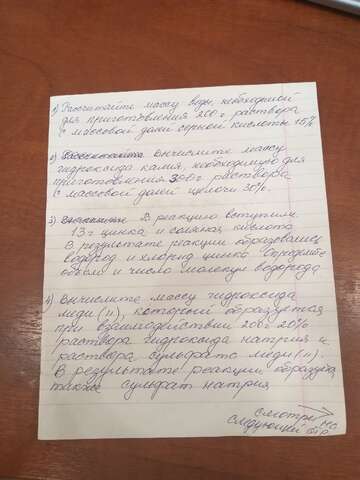 1) Рассчитайте массу воды, необходимой
для приготовления 200 г. раствора
с массовой долей серной кислоты 15%
2) Вычислите массу
гидроксида калия, необходимую для
приготовления 300 г раствора
с массовой долей щелочи 30%.
3) В реакцию вступили
13 г цинка и соляная кислота
В результате реакции образовались
водород и хлорид цинка. Определите
объем и число молекул водорода
4) Вычислите массу гидроксида
меди (II), который образуется
при взаимодействии 200 г 20%
раствора гидроксида натрия и
раствора сульфата меди (II).
В результате реакции образуется
также сульфат натрия
смотри на
следующей стр.